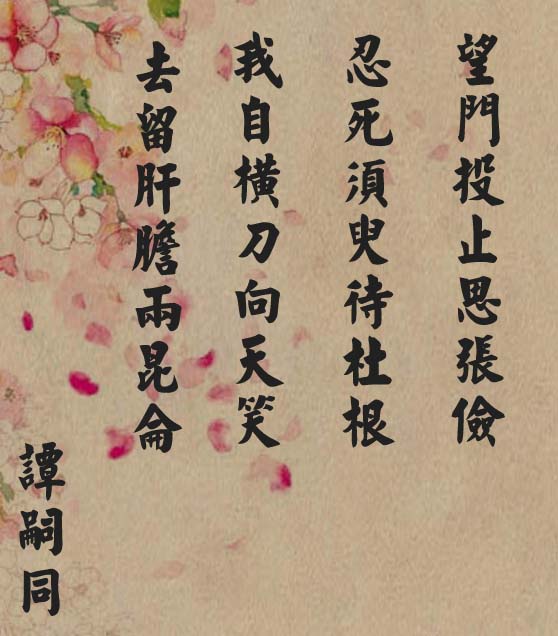 望門投止思張儉
忍死須臾待杜根
我自横刀向天笑
去留肝膽兩昆侖
譚嗣同